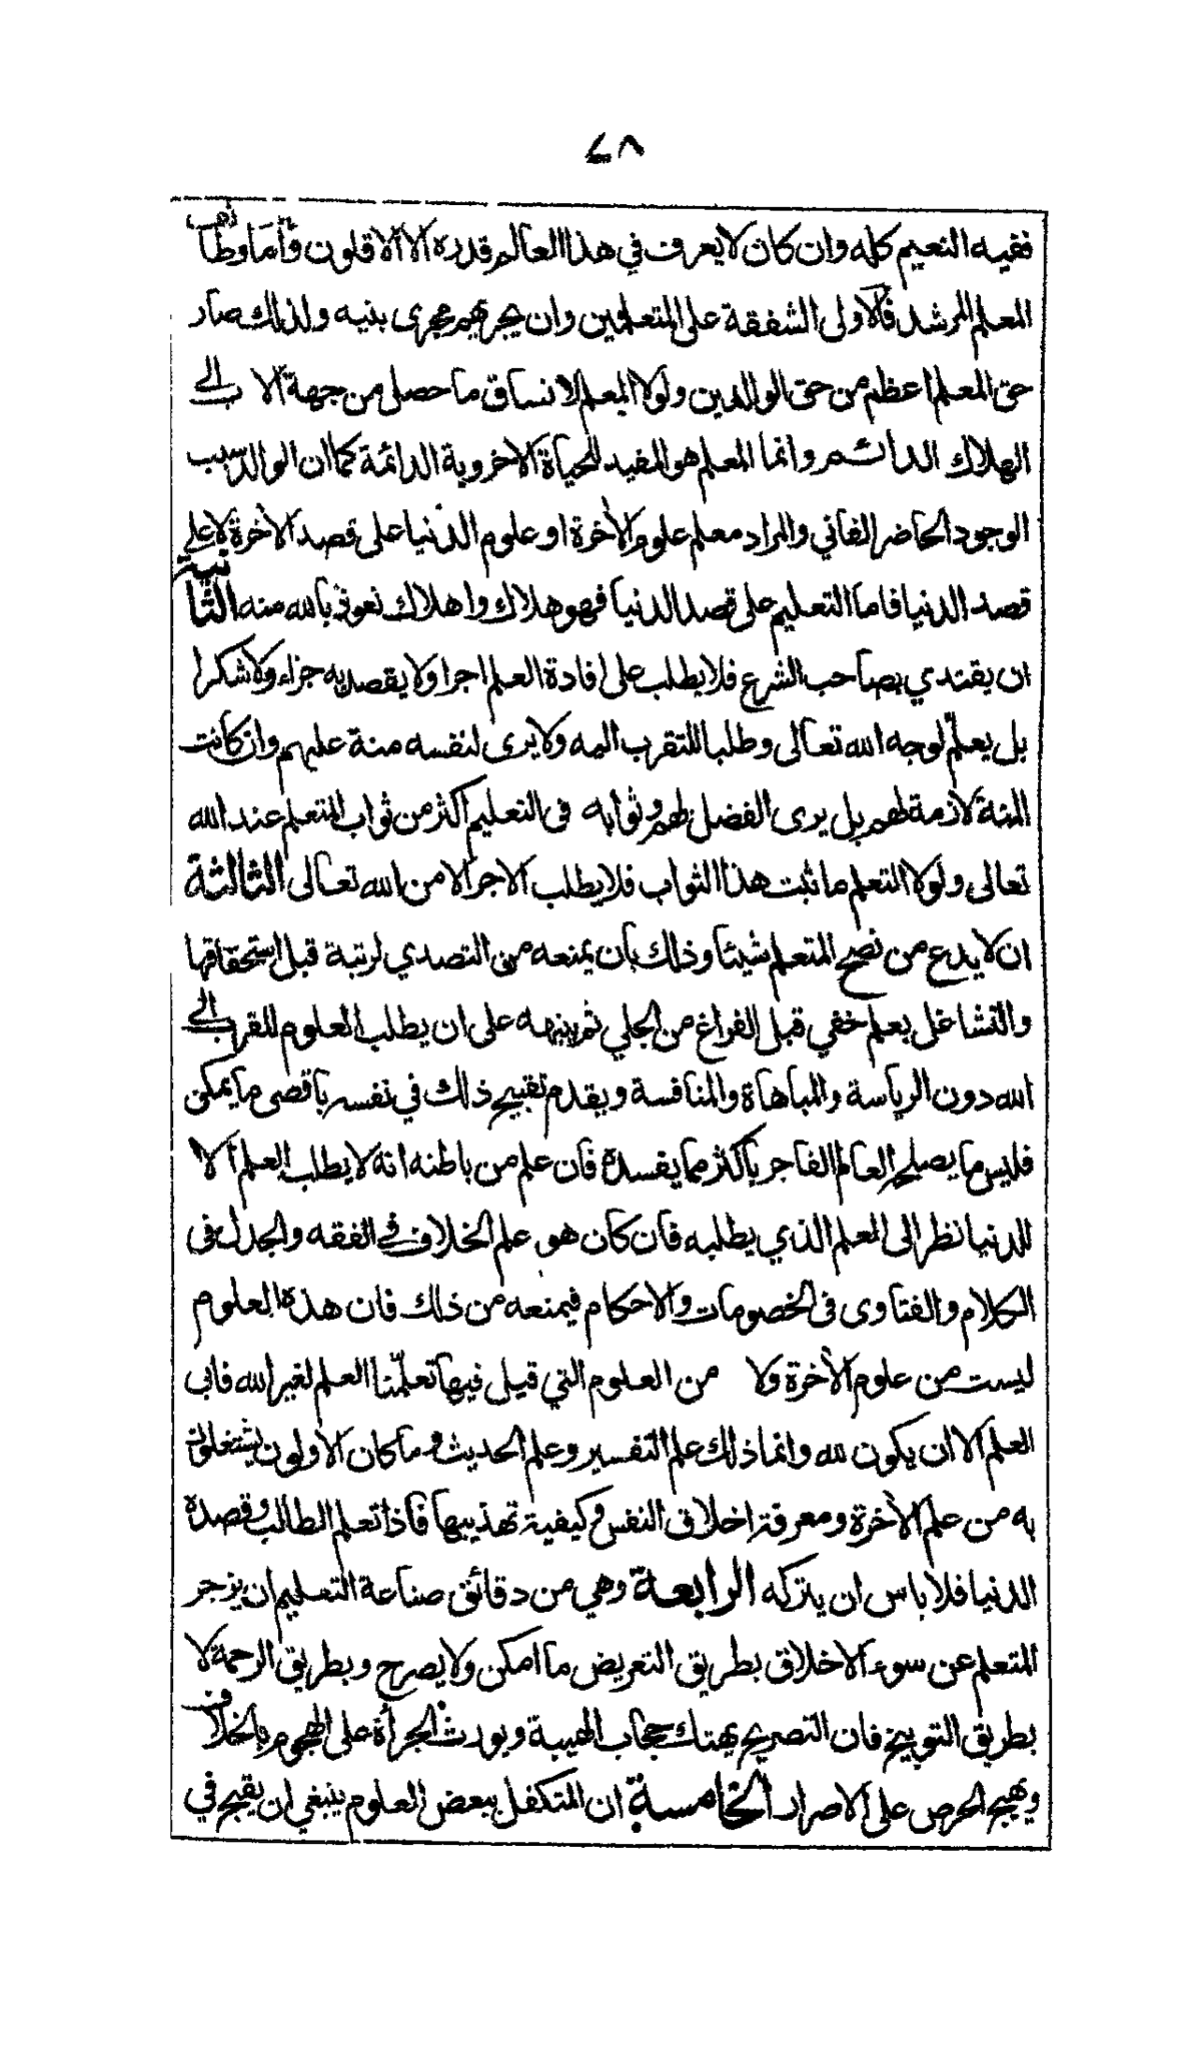 ٤٨
ففيه النعيم كله وان كان لا يعرف في هذا العالم قدره الا الاقلون وأما وظائف
المعلم المرشد فالاولى الشفقة على المتعلمين وان يجريهم مجرى بنيه ولذلك صار
حق المعلم اعظم من حق الوالدين ولولا المعلم لانساق ما حصل من جهة الاب الى
الهلاك الدائم وانما المعلم هو المفيد للحياة الاخروية الدائمة كما ان الوالد سبب
الوجود الحاضر الفاني والمراد معلم علوم الأخرة او علوم الدنيا على قصد الاخرة لا على
قصد الدنيا فاما التعليم على قصد الدنيا فهو هلاك واهلاك نعوذ بالله منه الثانية
ان يقتدي بصاحب الشرع فلا يطلب على افادة العلم اجرا ولا يقصد به جزاء ولا شكرا
بل يعلّم لوجه الله تعالى وطلبا للتقرب اليه ولا يرى لنفسه منة عليهم وان كانت
المنة لازمة لهم بل يرى الفضل لهم وثوابه في التعليم اكثر من ثواب المتعلم عند الله
تعالى ولولا التعلم ما ثبت هذا الثواب فلا يطلب الاجر الا من الله تعالى الثالثة
ان لا يدع من نصح المتعلم شيئا وذلك بان يمنعه من التصدي لرتبة قبل استحقاقها
والتشاغل بعلم خفي قبل الفراغ من الجلي ثم ينبهه على ان يطلب العلوم للقرب الى
الله دون الرياسة والمباهاة والمنافسة ويقدم تقبيح ذلك في نفسه باقصى ما يمكن
فليس ما يصلحه العالم الفاجر باكثر مما يفسده فان علم من باطنه انه لا يطلب العلم الا
للدنيا نظر الى المعلم الذي يطلبه فان كان هو علم الخلاف في الفقه والجدل في
الكلام والفتاوى في الخصومات والاحكام فيمنعه من ذلك فان هذه العلوم
ليست من علوم الأخرة ولا من العلوم التي قيل فيها تعلّمنا العلم لغير الله فابى
العلم الا ان يكون لله وانما ذلك علم التفسير وعلم الحديث وما كان الأولون يشتغلون
به من علم الأخرة ومعرفة اخلاق النفس وكيفية تهذيبها فاذا تعلم الطالب وقصده
الدنيا فلا باس ان يتركه الرابعة وهي من دقائق صناعة التعليم ان يزجر
المتعلم عن سوء الاخلاق بطريق التعريض ما امكن ولا يصرح وبطريق الرحمة لا
بطريق التوبيخ فان التصريح يهتك حجاب الهيبة ويورث الجرأة على الهجوم بالخلاف
ويهيج الحرص على الاصرار الخامسة ان المتكفل ببعض العلوم ينبغي ان يقبح في